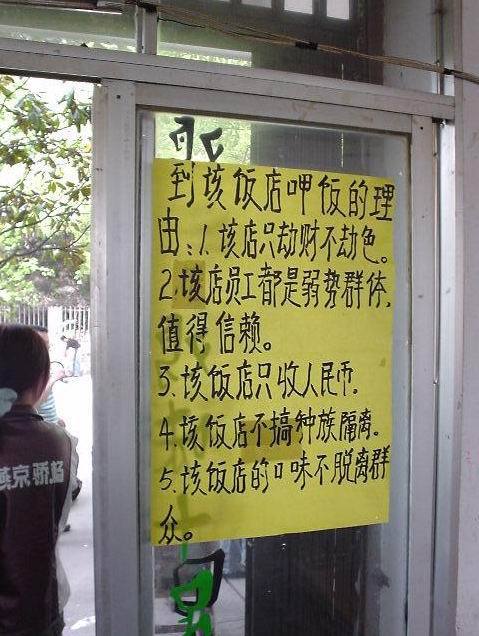 到该饭店呷饭的理
由:1.该店只劫财不劫色。
2.该店员工都是弱势群体,
值得信赖。
3.该饭店只收人民币.
4.该饭店不搞种族隔离。
5.该饭店的口味不脱离群
众。
燕京骄杨